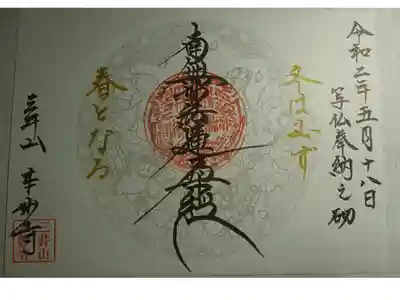 令和二年五月十八日
写仏奉納之砌
冬は必ず
南無妙法蓮華経
春となる
三井山 本妙寺
三井山